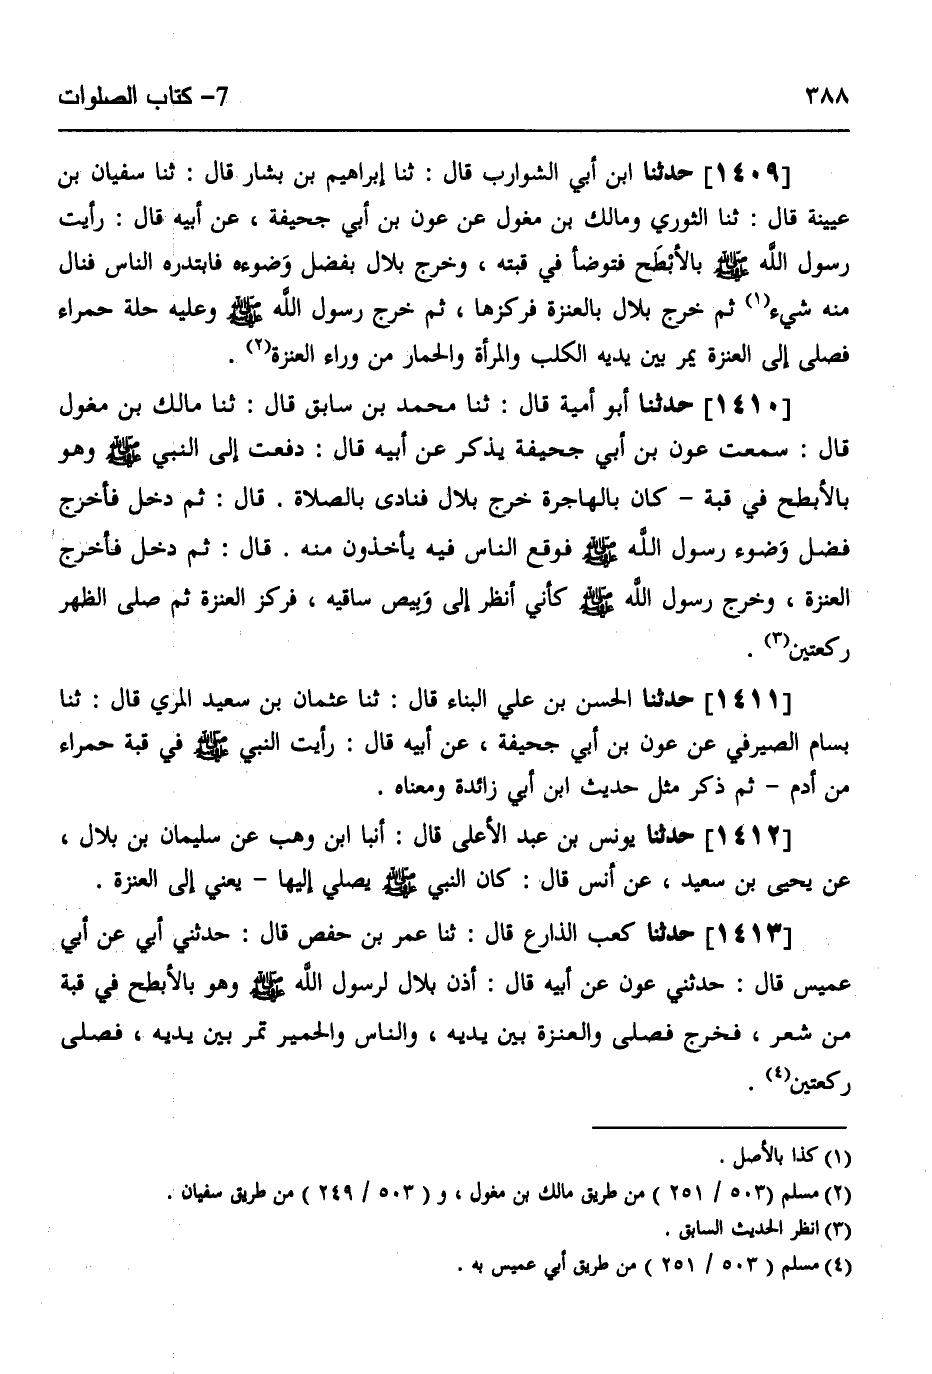 ٣٨٨
7- كتاب الصلوات
[١٤٠٩] حدثنا ابن أبي الشوارب قال : ثنا إبراهيم بن بشار قال : ثنا سفيان بن
عيينة قال : ثنا الثوري ومالك بن مغول عن عون بن أبي جحيفة ، عن أبيه قال : رأيت
رسول اللَّه ﷺ بالأبْطَح فتوضأ في قبته ، وخرج بلال بفضل وَضوءه فابتدره الناس فنال
منه شيء(١) ثم خرج بلال بالعنزة فركزها ، ثم خرج رسول اللَّه ﷺ وعليه حلة حمراء
فصلى إلى العنزة يمر بين يديه الكلب والمرأة والحمار من وراء العنزة(٢) .
[١٤١٠] حدثنا أبو أمية قال : ثنا محمد بن سابق قال : ثنا مالك بن مغول
قال : سمعت عون بن أبي جحيفة يذكر عن أبيه قال : دفعت إلى النبي ﷺ وهو
بالأبطح في قبة – كان بالهاجرة خرج بلال فنادى بالصلاة . قال : ثم دخل فأخرج
فضل وَضوء رسول اللَّه ﷺ فوقع الناس فيه يأخذون منه . قال : ثم دخل فأخرج
العنزة ، وخرج رسول اللَّه ﷺ كأني أنظر إلى وَبِيص ساقيه ، فركز العنزة ثم صلى الظهر
ركعتين(٣) .
[١٤١١] حدثنا الحسن بن علي البناء قال : ثنا عثمان بن سعيد المري قال : ثنا
بسام الصيرفي عن عون بن أبي جحيفة ، عن أبيه قال : رأيت النبي ﷺ في قبة حمراء
من أدم – ثم ذكر مثل حديث ابن أبي زائدة ومعناه .
[١٤١٢] حدثنا يونس بن عبد الأعلى قال : أنبا ابن وهب عن سليمان بن بلال ،
عن يحيى بن سعيد ، عن أنس قال : كان النبي ﷺ يصلي إليها – يعني إلى العنزة .
[١٤١٣] حدثنا كعب الذارع قال : ثنا عمر بن حفص قال : حدثني أبي عن أبي
عميس قال : حدثني عون عن أبيه قال : أذن بلال لرسول اللَّه ﷺ وهو بالأبطح في قبة
من شعر ، فخرج فصلى والعنزة بين يديه ، والناس والحمير تمر بين يديه ، فصلى
ركعتين(٤) .
(١) كذا بالأصل .
(٢) مسلم (٥٠٣ / ٢٥١ ) من طريق مالك بن مغول ، و ( ٥٠٣ / ٢٤٩ ) من طريق سفيان .
(٣) انظر الحديث السابق .
(٤) مسلم ( ٥٠٣ / ٢٥١ ) من طريق أبي عميس به .